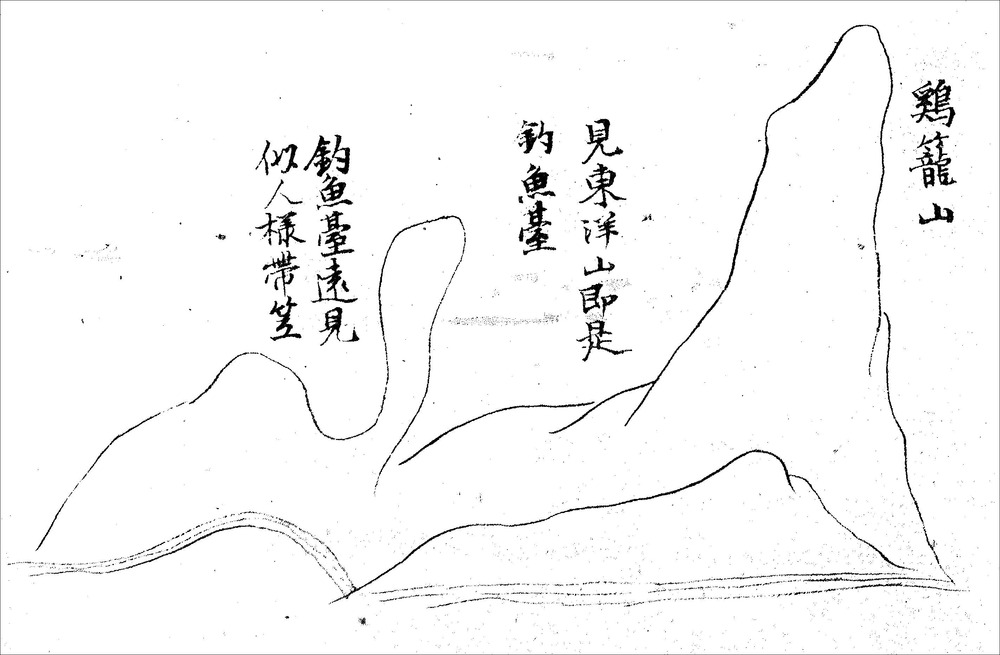 鷄籠山
見東洋山即是
釣魚臺
釣魚臺遠見
似人樣帶笠